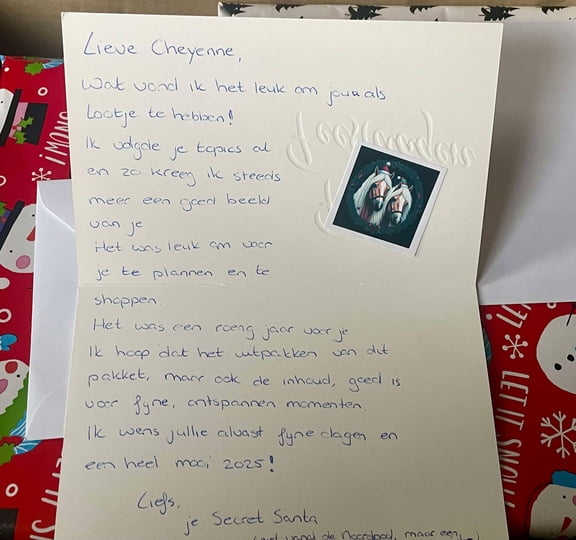 Lieve Cheyenne,
Wat vond ik het leuk om jou als
lootje te hebben!
Ik volgde je topics al
en zo kreeg ik steeds
meer een goed beeld
van je
Het was leuk om voor
je te plannen en te
shoppen.
Het was een roeng jaar voor je
Ik hoop dat het uitpakken van dit
pakket, maar ook de inhoud, goed is
voor fyne, ontspannen momenten.
Ik wens jullie alvast fyne dagen en
een heel mooi 2025!
Liefs,
je Secret Santa
de Noordpool, maar een
LET IT SNOW!